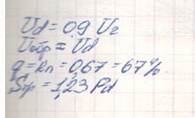 Ud = 0,9 U2
Uобр = Ud
q = Kn = 0,67 = 67%
Sтр = 1,23 Pd